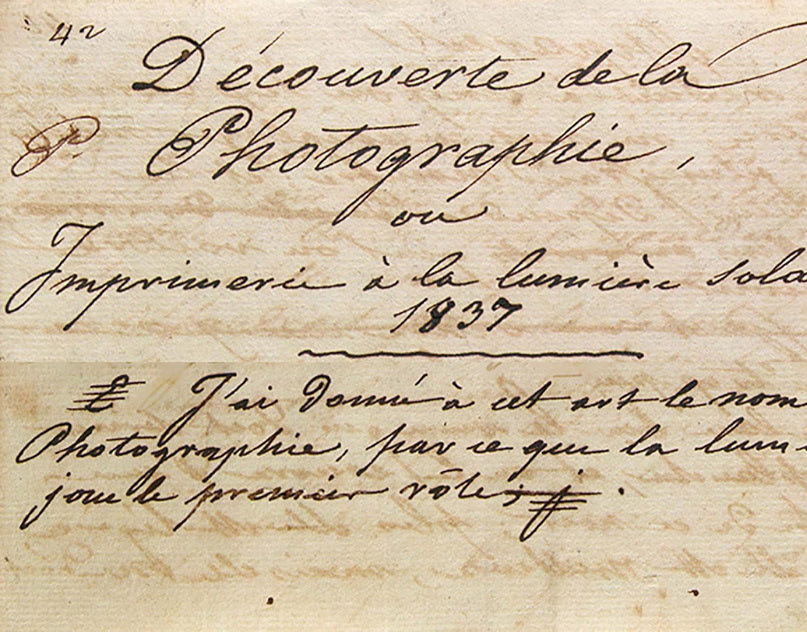 42
Découverte de la
P. Photographie,
ou
Imprimerie à la lumière sola
1837
J'ai donné à cet art le nom
Photographie, par ce que la lum
joue le premier rôle;